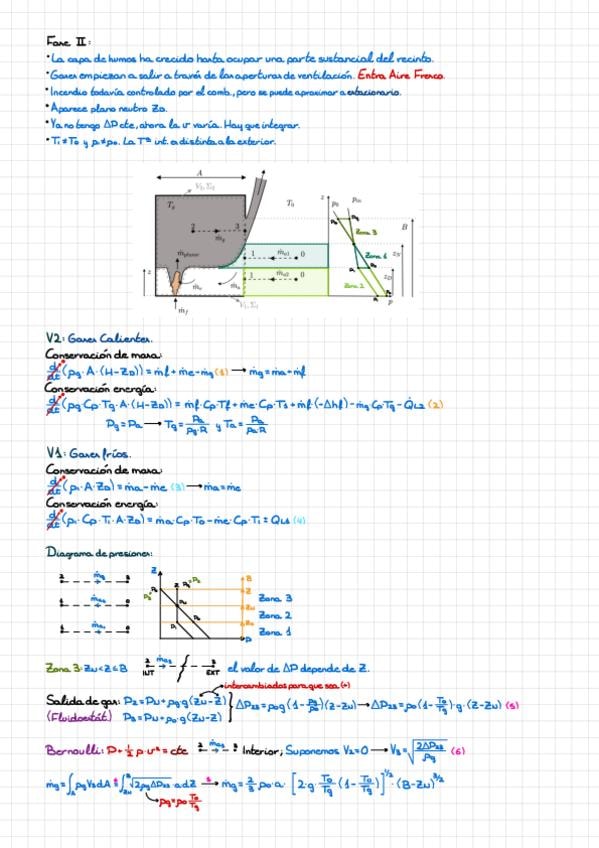 Fase II:
• La capa de humos ha crecido hasta ocupar una parte sustancial del recinto.
• Gases empiezan a salir a través de las aperturas de ventilación. Entra Aire Fresco.
• Incendio todavía controlado por el comb., pero se puede aproximar a estacionario.
• Aparece plano neutro ZD.
• Ya no tengo ΔP cte, ahora la v varía. Hay que integrar.
• T1≠T0 y ρ1≠ρ0. La Tª int. es distinta a la exterior.
A
V2, Σ2
Tg
T0
z
p0
pin
2
3
ṁg
Zona 3
B
ṁplume
Zona 1
zN
1
ṁa1
0
zD
z
ṁe
ṁa
1
ṁa2
0
Zona 2
V1, Σ1
p
ṁf
V2: Gases Calientes.
Conservación de masa:
d/dt (ρg·A·(H-ZD)) = ṁf + ṁe - ṁg (1) → ṁg = ṁa + ṁf
Conservación energía:
d/dt (ρg·Cp·Tg·A·(H-ZD)) = ṁf·Cp·Tf + ṁe·Cp·T1 + ṁf·(-Δhf) - ṁg·Cp·Tg - Q̇L2 (2)
Pg = Pa → Tg = Pa/ρg·R y Ta = Pa/ρa·R
V1: Gases fríos.
Conservación de masa:
d/dt (ρ1·A·ZD) = ṁa - ṁe (3) → ṁa = ṁe
Conservación energía:
d/dt (ρ1·Cp·T1·A·ZD) = ṁa·Cp·T0 - ṁe·Cp·T1 ± QL1 (4)
Diagrama de presiones:
2 ṁg 3
Z
B
Z
Zona 3
1 0
ZN
Zona 2
ZD
1 0
Zona 1
P
Zona 3: ZN<Z≤B
2 3
INT EXT
el valor de ΔP depende de Z.
intercambiadas para que sea (+)
Salida de gas: P2 = PN + ρg·g(ZN-Z)
(Fluidostát.) P3 = PN + ρ0·g·(ZN-Z)
ΔP23 = ρ0g(1-ρg/ρ0)(Z-ZN) → ΔP23 = ρ0(1-T0/Tg)·g·(Z-ZN) (5)
Bernoulli: P + 1/2 ρ·v² = cte 2 3 Interior; Suponemos V2=0 → V3 = √(2ΔP23/ρg) (6)
ṁg = ∫A ρgV3dA = ∫ZN^B √(2ρgΔP23) adZ → ṁg = 2/3 ρ0·a· [2·g·T0/Tg (1-T0/Tg)]^1/2 ·(B-ZN)^3/2
ρg = ρ0 T0/Tg